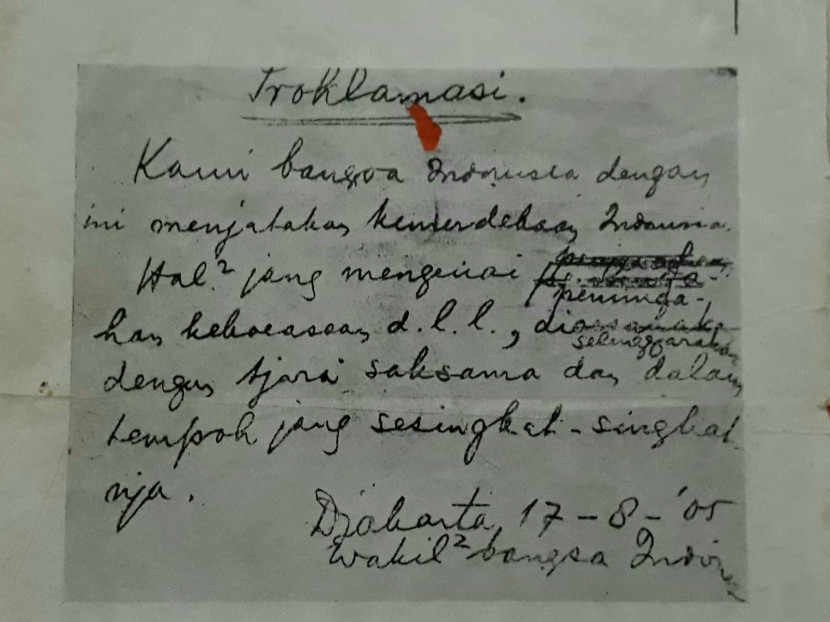 Proklamasi.
Kami bangsa Indonesia dengan
ini menjatakan kemerdekaan Indonesia.
Hal² jang mengenai
peminda-
han keboeasaan d.l.l., di
selenggarakan
dengan tjara saksama dan dalam
tempoh jang sesingkat-singkat
nja.
Djakarta, 17-8-'05
Wakil² bangsa Indon